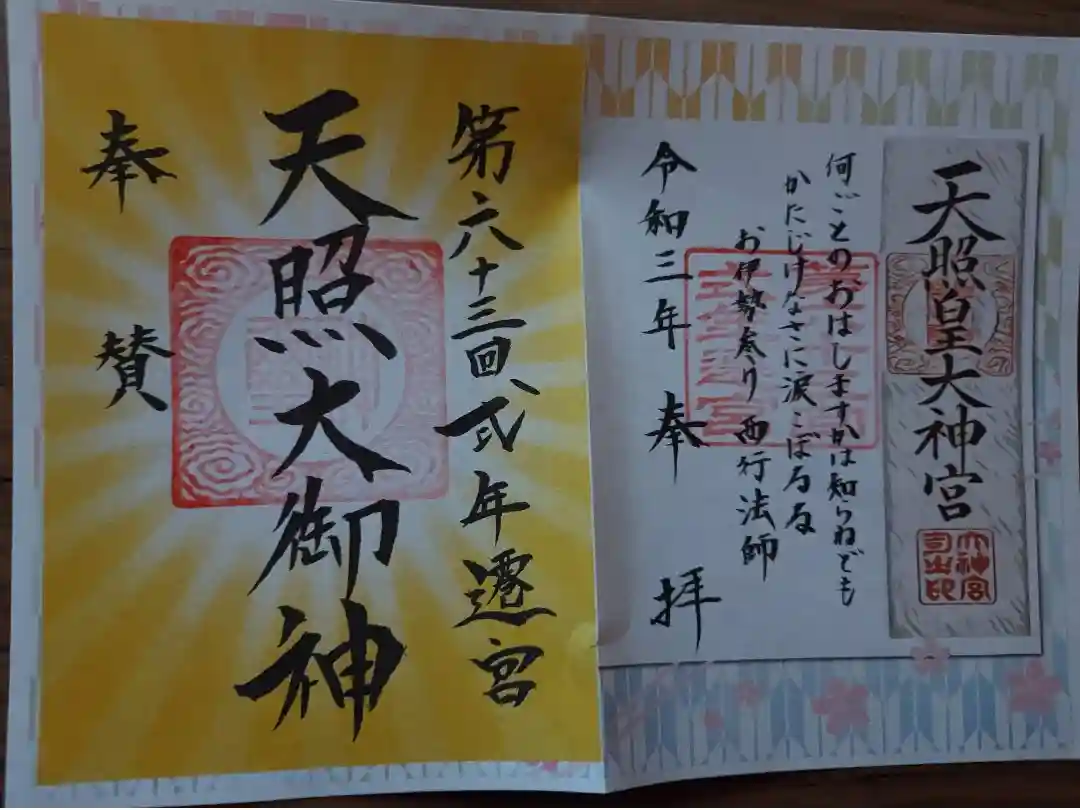 天照皇大神宮
大神宮
司之印
何ごとのおはしますかは知らねども
かたじけなさに涙こぼるる
お伊勢参り 西行法師
令和三年 奉拝
第六十三回、式年遷宮
天照大御神
奉賛